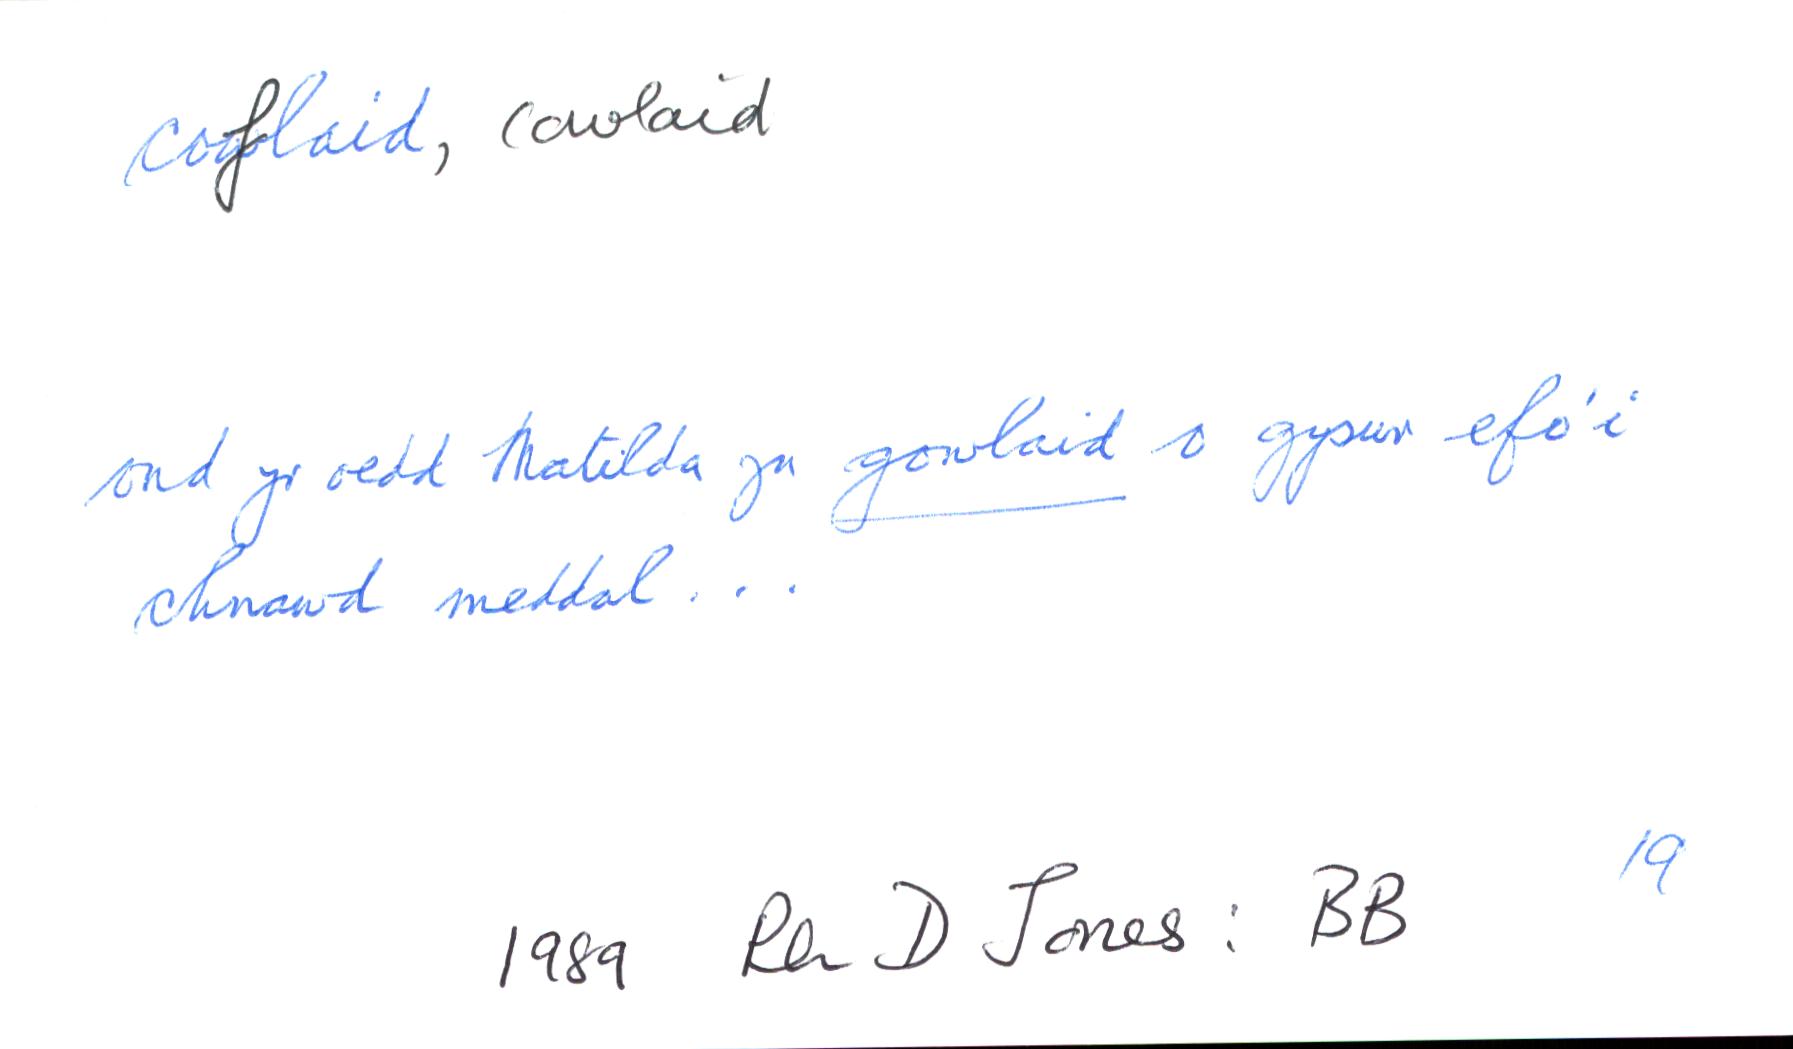 coflaid, cowlaid
ond yr oedd Matilda yn gowlaid o gysur efo'i
chnawd meddal...
19
1989 Rh D Jones: BB